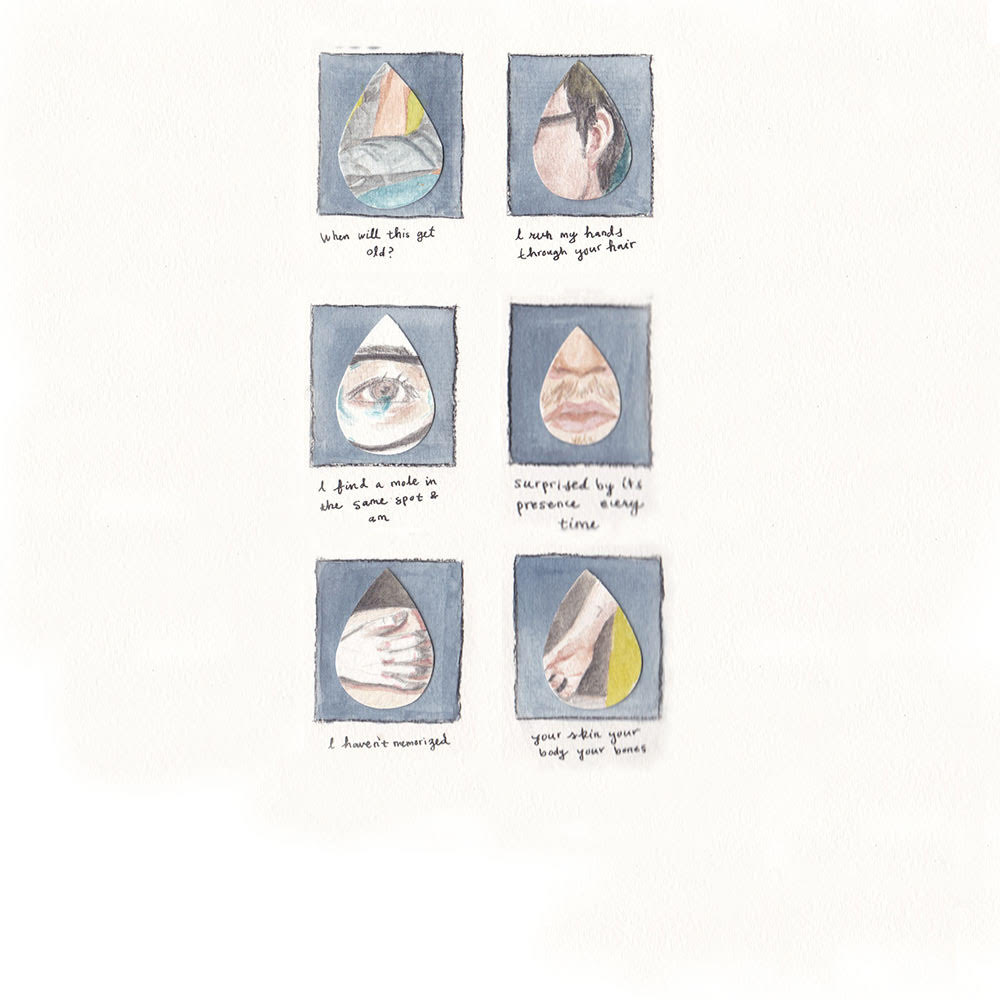 When will this get
old?
I run my hands
through your hair
I find a mole in
the same spot &
am
surprised by its
presence every
time
I haven't memorized
your skin your
body your bones